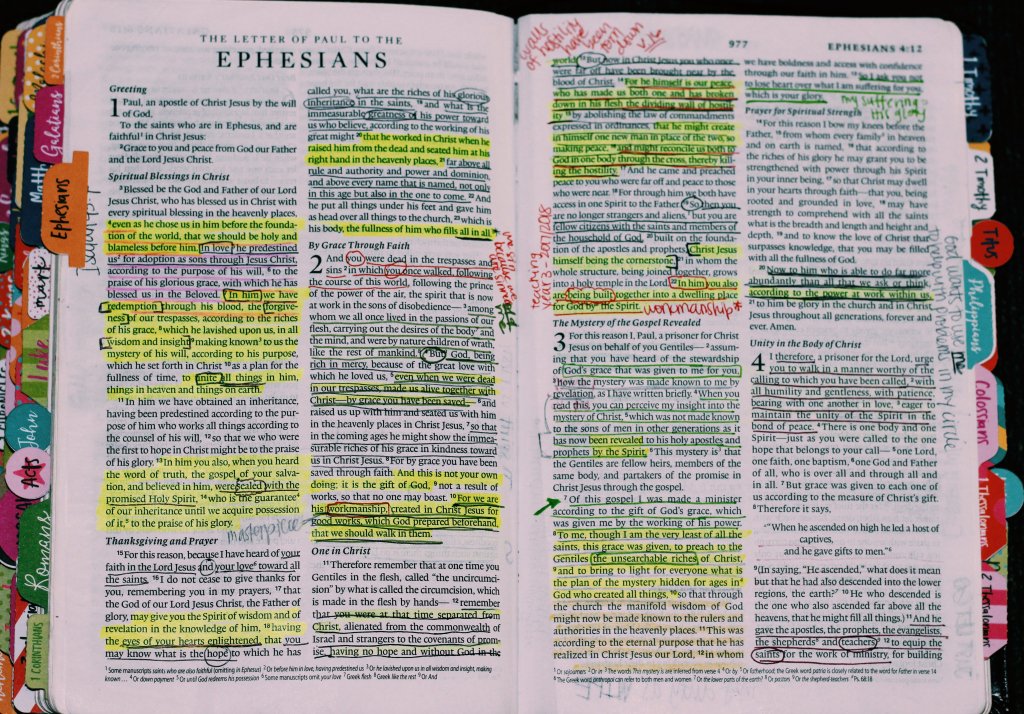 THE LETTER OF PAUL TO THE
EPHESIANS
Greeting
1 Paul, an apostle of Christ Jesus by the will
of God,
To the saints who are in Ephesus, and are
faithful¹ in Christ Jesus:
²Grace to you and peace from God our Father
and the Lord Jesus Christ.
Spiritual Blessings in Christ
³Blessed be the God and Father of our Lord
Jesus Christ, who has blessed us in Christ with
every spiritual blessing in the heavenly places,
⁴even as he chose us in him before the founda-
tion of the world, that we should be holy and
blameless before him. In love he predestined
us² for adoption as sons through Jesus Christ,
according to the purpose of his will, ⁶to the
praise of his glorious grace, with which he has
blessed us in the Beloved. ⁷In him we have
redemption through his blood, the forgive-
ness of our trespasses, according to the riches
of his grace, ⁸which he lavished upon us, in all
wisdom and insight ⁹making known³ to us the
mystery of his will, according to his purpose,
which he set forth in Christ ¹⁰as a plan for the
fullness of time, to unite all things in him,
things in heaven and things on earth.
¹¹In him we have obtained an inheritance,
having been predestined according to the pur-
pose of him who works all things according to
the counsel of his will, ¹²so that we who were
the first to hope in Christ might be to the praise
of his glory. ¹³In him you also, when you heard
the word of truth, the gospel of your salva-
tion, and believed in him, were sealed with the
promised Holy Spirit, ¹⁴who is the guarantee⁴
of our inheritance until we acquire possession
of it,⁵ to the praise of his glory.
masterpiece
Thanksgiving and Prayer
¹⁵For this reason, because I have heard of your
faith in the Lord Jesus and your love⁶ toward all
the saints, ¹⁶I do not cease to give thanks for
you, remembering you in my prayers, ¹⁷that
the God of our Lord Jesus Christ, the Father of
glory, may give you the Spirit of wisdom and of
revelation in the knowledge of him, ¹⁸having
the eyes of your hearts enlightened, that you
may know what is the hope to which he has
called you, what are the riches of his glorious
inheritance in the saints, ¹⁹and what is the
immeasurable greatness of his power toward
us who believe, according to the working of his
great might ²⁰that he worked in Christ when he
raised him from the dead and seated him at his
right hand in the heavenly places, ²¹far above all
rule and authority and power and dominion,
and above every name that is named, not only
in this age but also in the one to come. ²²And
he put all things under his feet and gave him
as head over all things to the church, ²³which is
his body, the fullness of him who fills all in all.
By Grace Through Faith
2 And you were dead in the trespasses and
sins ²in which you once walked, following
the course of this world, following the prince
of the power of the air, the spirit that is now
at work in the sons of disobedience— ³among
whom we all once lived in the passions of our
flesh, carrying out the desires of the body⁷ and
the mind, and were by nature children of wrath,
like the rest of mankind.⁸ ⁴But God, being
rich in mercy, because of the great love with
which he loved us, ⁵even when we were dead
in our trespasses, made us alive together with
Christ—by grace you have been saved— ⁶and
raised us up with him and seated us with him
in the heavenly places in Christ Jesus, ⁷so that
in the coming ages he might show the immea-
surable riches of his grace in kindness toward
us in Christ Jesus. ⁸For by grace you have been
saved through faith. And this is not your own
doing; it is the gift of God, ⁹not a result of
works, so that no one may boast. ¹⁰For we are
his workmanship, created in Christ Jesus for
good works, which God prepared beforehand,
that we should walk in them.
One in Christ
¹¹Therefore remember that at one time you
Gentiles in the flesh, called “the uncircumci-
sion” by what is called the circumcision, which
is made in the flesh by hands— ¹²remember
that you were at that time separated from
Christ, alienated from the commonwealth of
Israel and strangers to the covenants of prom-
ise, having no hope and without God in the
¹Some manuscripts saints who are also faithful (omitting in Ephesus) ²Or before him in love, having predestined us ³Or he lavished upon us in all wisdom and insight, making
known . . . ⁴Or down payment ⁵Or until God redeems his possession ⁶Some manuscripts omit your love ⁷Greek flesh ⁸Greek like the rest ⁹Or And
977
EPHESIANS 4:12
walls
of hostility
have been
torn down
v.14
world. ¹³But now in Christ Jesus you who once
were far off have been brought near by the
blood of Christ. ¹⁴For he himself is our peace,
who has made us both one and has broken
down in his flesh the dividing wall of hostil-
ity ¹⁵by abolishing the law of commandments
expressed in ordinances, that he might create
in himself one new man in place of the two, so
making peace, ¹⁶and might reconcile us both to
God in one body through the cross, thereby kill-
ing the hostility. ¹⁷And he came and preached
peace to you who were far off and peace to those
who were near. ¹⁸For through him we both have
access in one Spirit to the Father. ¹⁹So then you
are no longer strangers and aliens,¹ but you are
fellow citizens with the saints and members of
the household of God, ²⁰built on the founda-
tion of the apostles and prophets, Christ Jesus
himself being the cornerstone, ²¹in whom the
whole structure, being joined together, grows
into a holy temple in the Lord. ²²In him you also
are being built together into a dwelling place
for God by the Spirit. workmanship*
The Mystery of the Gospel Revealed
3 For this reason I, Paul, a prisoner for Christ
Jesus on behalf of you Gentiles— ²assum-
ing that you have heard of the stewardship
of God's grace that was given to me for you,
³how the mystery was made known to me by
revelation, as I have written briefly. ⁴When you
read this, you can perceive my insight into the
mystery of Christ, ⁵which was not made known
to the sons of men in other generations as it
has now been revealed to his holy apostles and
prophets by the Spirit. ⁶This mystery is³ that
the Gentiles are fellow heirs, members of the
same body, and partakers of the promise in
Christ Jesus through the gospel.
⁷Of this gospel I was made a minister
according to the gift of God's grace, which
was given me by the working of his power.
⁸To me, though I am the very least of all the
saints, this grace was given, to preach to the
Gentiles the unsearchable riches of Christ,
⁹and to bring to light for everyone what is
the plan of the mystery hidden for ages in⁴
God who created all things, ¹⁰so that through
the church the manifold wisdom of God
might now be made known to the rulers and
authorities in the heavenly places. ¹¹This was
according to the eternal purpose that he has
realized in Christ Jesus our Lord, ¹²in whom
we have boldness and access with confidence
through our faith in him. ¹³So I ask you not
to lose heart over what I am suffering for you,
which is your glory. my suffering
His glory
Prayer for Spiritual Strength
¹⁴For this reason I bow my knees before the
Father, ¹⁵from whom every family⁵ in heaven
and on earth is named, ¹⁶that according to
the riches of his glory he may grant you to be
strengthened with power through his Spirit
in your inner being, ¹⁷so that Christ may dwell
in your hearts through faith—that you, being
rooted and grounded in love, ¹⁸may have
strength to comprehend with all the saints
what is the breadth and length and height and
depth, ¹⁹and to know the love of Christ that
surpasses knowledge, that you may be filled
with all the fullness of God.
²⁰Now to him who is able to do far more
abundantly than all that we ask or think,
according to the power at work within us,
²¹to him be glory in the church and in Christ
Jesus throughout all generations, forever and
ever. Amen.
Unity in the Body of Christ
4 I therefore, a prisoner for the Lord, urge
you to walk in a manner worthy of the
calling to which you have been called, ²with
all humility and gentleness, with patience,
bearing with one another in love, ³eager to
maintain the unity of the Spirit in the
bond of peace. ⁴There is one body and one
Spirit—just as you were called to the one
hope that belongs to your call— ⁵one Lord,
one faith, one baptism, ⁶one God and Father
of all, who is over all and through all and in
all. ⁷But grace was given to each one of
us according to the measure of Christ's gift.
⁸Therefore it says,
“When he ascended on high he led a host of
captives,
and he gave gifts to men.”⁶
⁹(In saying, “He ascended,” what does it mean
but that he had also descended into the lower
regions, the earth?⁷ ¹⁰He who descended is
the one who also ascended far above all the
heavens, that he might fill all things.) ¹¹And he
gave the apostles, the prophets, the evangelists,
the shepherds⁸ and teachers,⁹ ¹²to equip the
saints for the work of ministry, for building
¹Or sojourners ²Or in ³The words This mystery is are inferred from verse 4 ⁴Or by ⁵Or fatherhood; the Greek word patria is closely related to the word for Father in verse 14
⁶The Greek word anthropoi can refer to both men and women ⁷Or the lower parts of the earth? ⁸Or pastors ⁹Or the shepherd-teachers ⁶Ps. 68:18
God wants to use me
in my circle
2 Corinthians
Galatians
Math
Ephesians
mark
Luke
John
Acts
Romans
1 CORINTHIANS
1 Timothy
2 Timothy
Titus
Philippians
Colossians
1 Thessalonians
2 Thessalonians